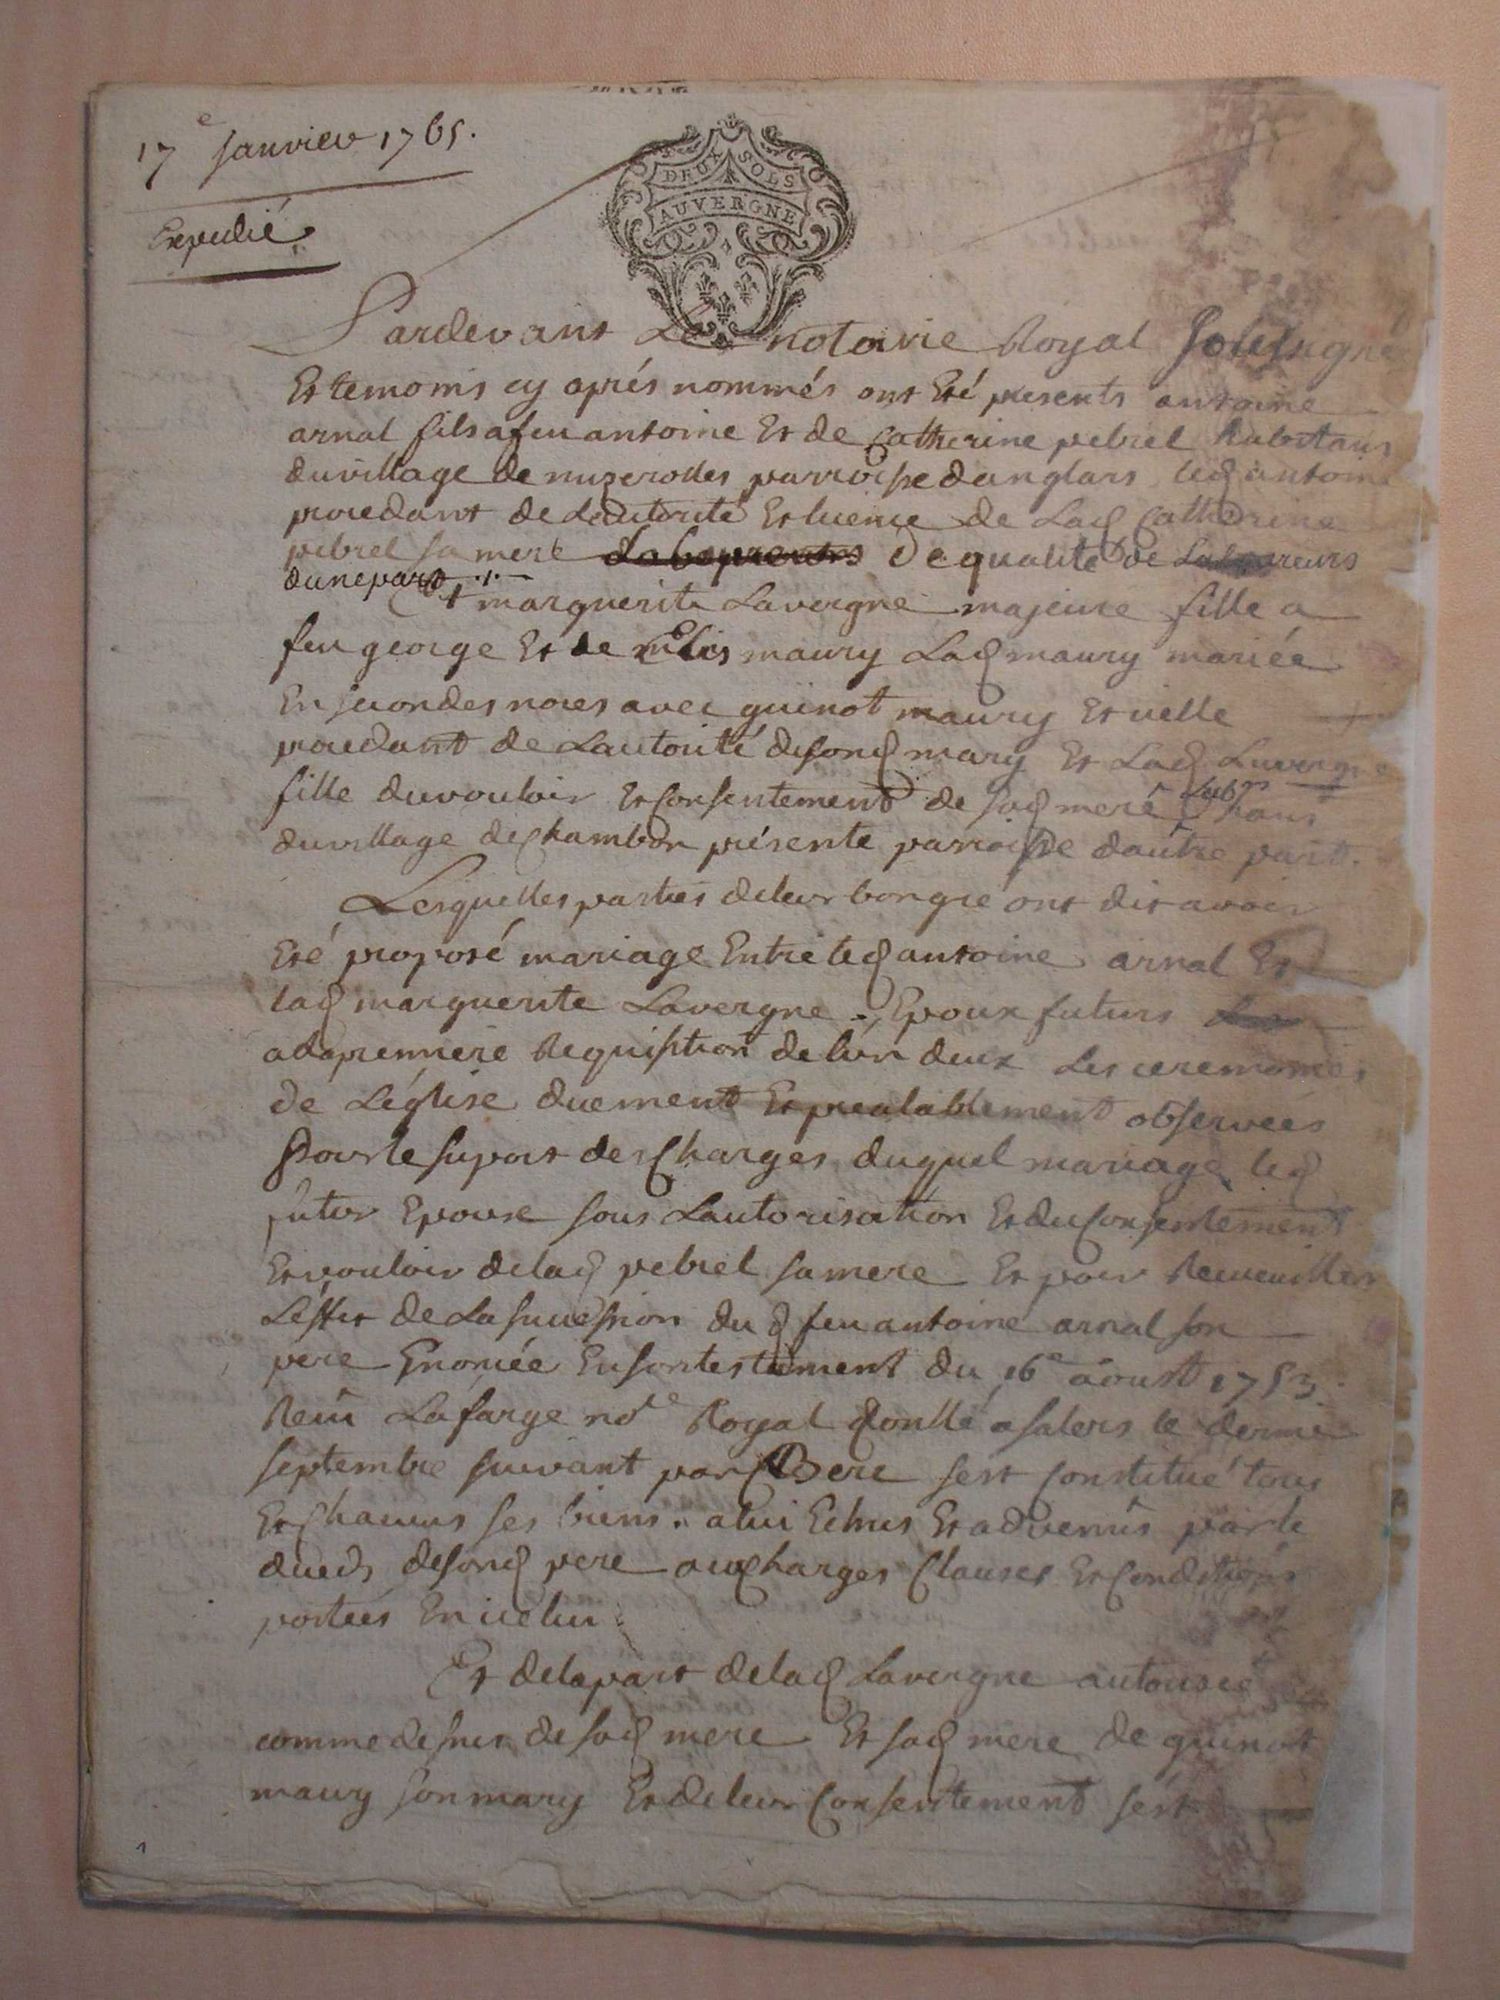 17e janvier 1765.
Expedié
DEUX SOLS
AUVERGNE
Pardevant Le notaire Royal
Et temoins cy aprés nommés ont Eté presents antoine
arnal fils a feu antoine Et de Catherine pebrel habitans
du village de nuzerolles parroisse danglars led antoine
procedant de Lautorité Et licence de Lad Catherine
pebrel sa mere de qualité de Laboureurs
dune part
Et marguerite Lavergne majeure fille a
feu george Et de maury Lad maury mariée
En secondes noces avec guinot maury Et icelle
procedant de Lautorité de sond mary Et Lad Lavergne
fille du vouloir Et Consentement de sad mere habns
du village de Chambon présente parroisse dautre part.
Lesquelles parties de leur bon gré ont dit avoir
Eté proposé mariage Entre led antoine arnal Et
lad marguerite Lavergne Epoux futurs
a la premiere Requisition de lun deux Les ceremonies
de Léglise duement Et prealablement observées
Pour le suport des Charges duquel mariage led
futur Epoux sous Lautorisation Et du Consentement
Et vouloir de lad pebrel sa mere Et pour Recueuillir
Léffet de La succession du d feu antoine arnal son
pere Enoncée En son testament du 16e aoust 1753.
Recu Lafarge nore Royal Conllé a salers le dernier
septembre suivant par sest Constitué tous
Et Chacuns ses biens a lui Echus Et advenus par le
duceds de sond pere aux Charges Clauses Et Conditions
portées En icelui
Et de la part de lad Lavergne autorisée
comme dessus de sad mere Et sad mere de guinot
maury son mary Et de leur Consentement sést
1